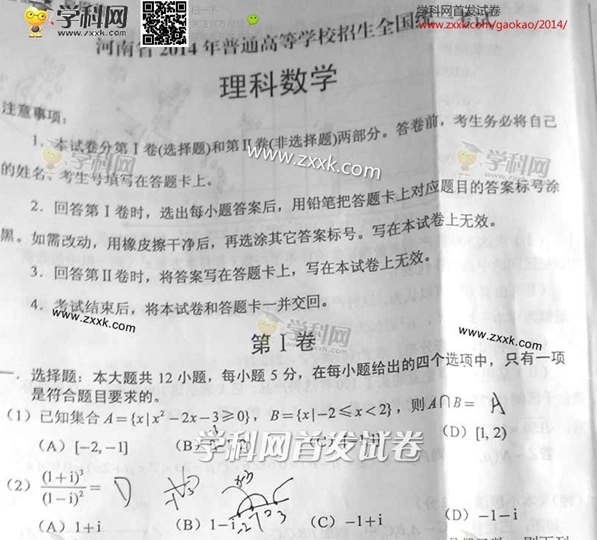 学科网
学科网首发试卷
www.zxxk.com/gaokao/2014/
河南省2014年普通高等学校招生全国统一考试
理科数学
注意事项:
1. 本试卷分第Ⅰ卷(选择题)和第Ⅱ卷(非选择题)两部分。答卷前,考生务必将自己
的姓名、考生号填写在答题卡上。
www.zxxk.com
学科网
学科网
2. 回答第Ⅰ卷时,选出每小题答案后,用铅笔把答题卡上对应题目的答案标号涂
黑。如需改动,用橡皮擦干净后,再选涂其它答案标号。写在本试卷上无效。
3. 回答第Ⅱ卷时,将答案写在答题卡上,写在本试卷上无效。
4. 考试结束后,将本试卷和答题卡一并交回。
www.zxxk.com
学科网
www.zxxk.com
第Ⅰ卷
一. 选择题:本大题共12小题,每小题5分,在每小题给出的四个选项中,只有一项
是符合题目要求的。
(1) 已知集合A={x|x²-2x-3≥0},B={x|-2≤x<2},则A∩B= A
(A) [-2,-1] (B) (C) (D) [1,2)
学科网首发试卷
(2) (1+i)³/(1-i)²= D
(A) 1+i (B) 1-i (C) -1+i (D) -1-i